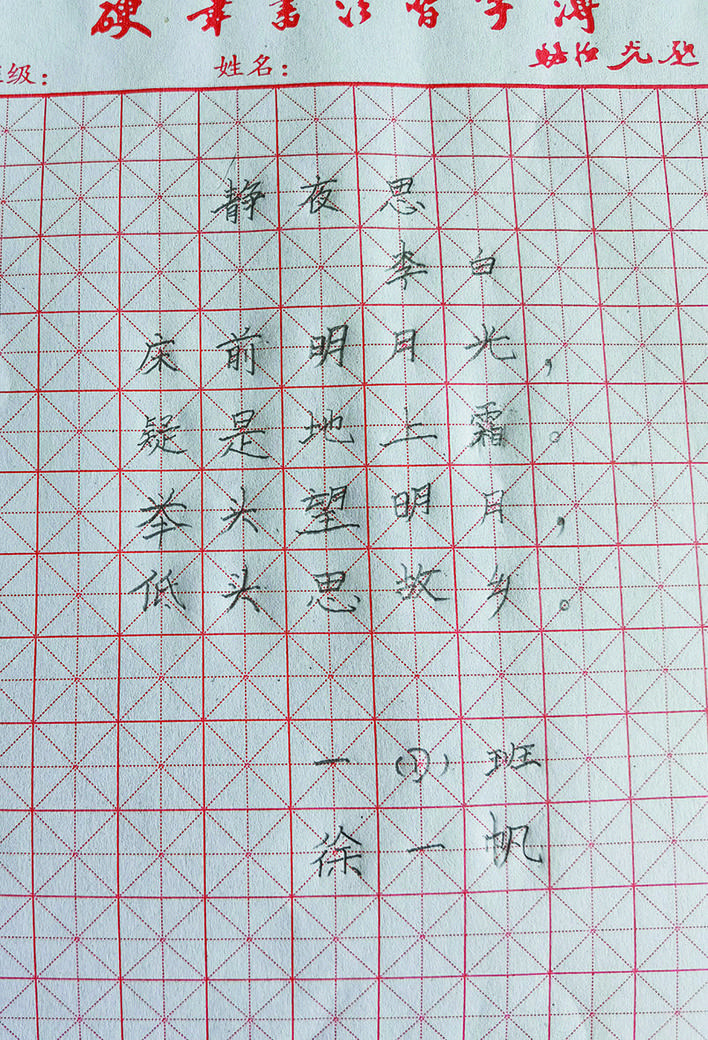 硬笔书法习字簿
级： 姓名：
静夜思
李白
床前明月光，
疑是地上霜。
举头望明月，
低头思故乡。
一（1）班
徐一帆